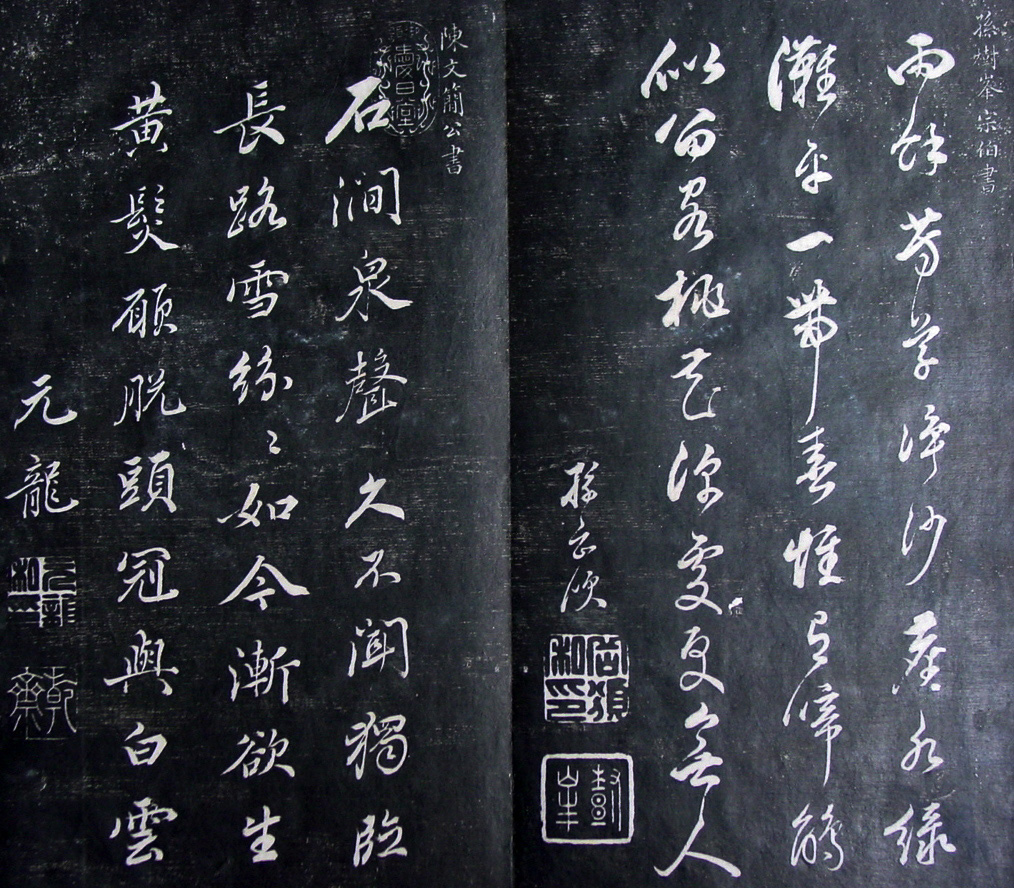 孫樹峯宗伯書
雨餘芳草淨沙塵水綠
灘平一帶春惟有啼鵑
似留客桃花深處更無人
孫岳頒
岳頒私印
樹峯
陳文簡公書
愛日堂
石澗泉聲久不聞獨臨
長路雪紛〻如今漸欲生
黃髮願脫頭冠與白雲
元龍